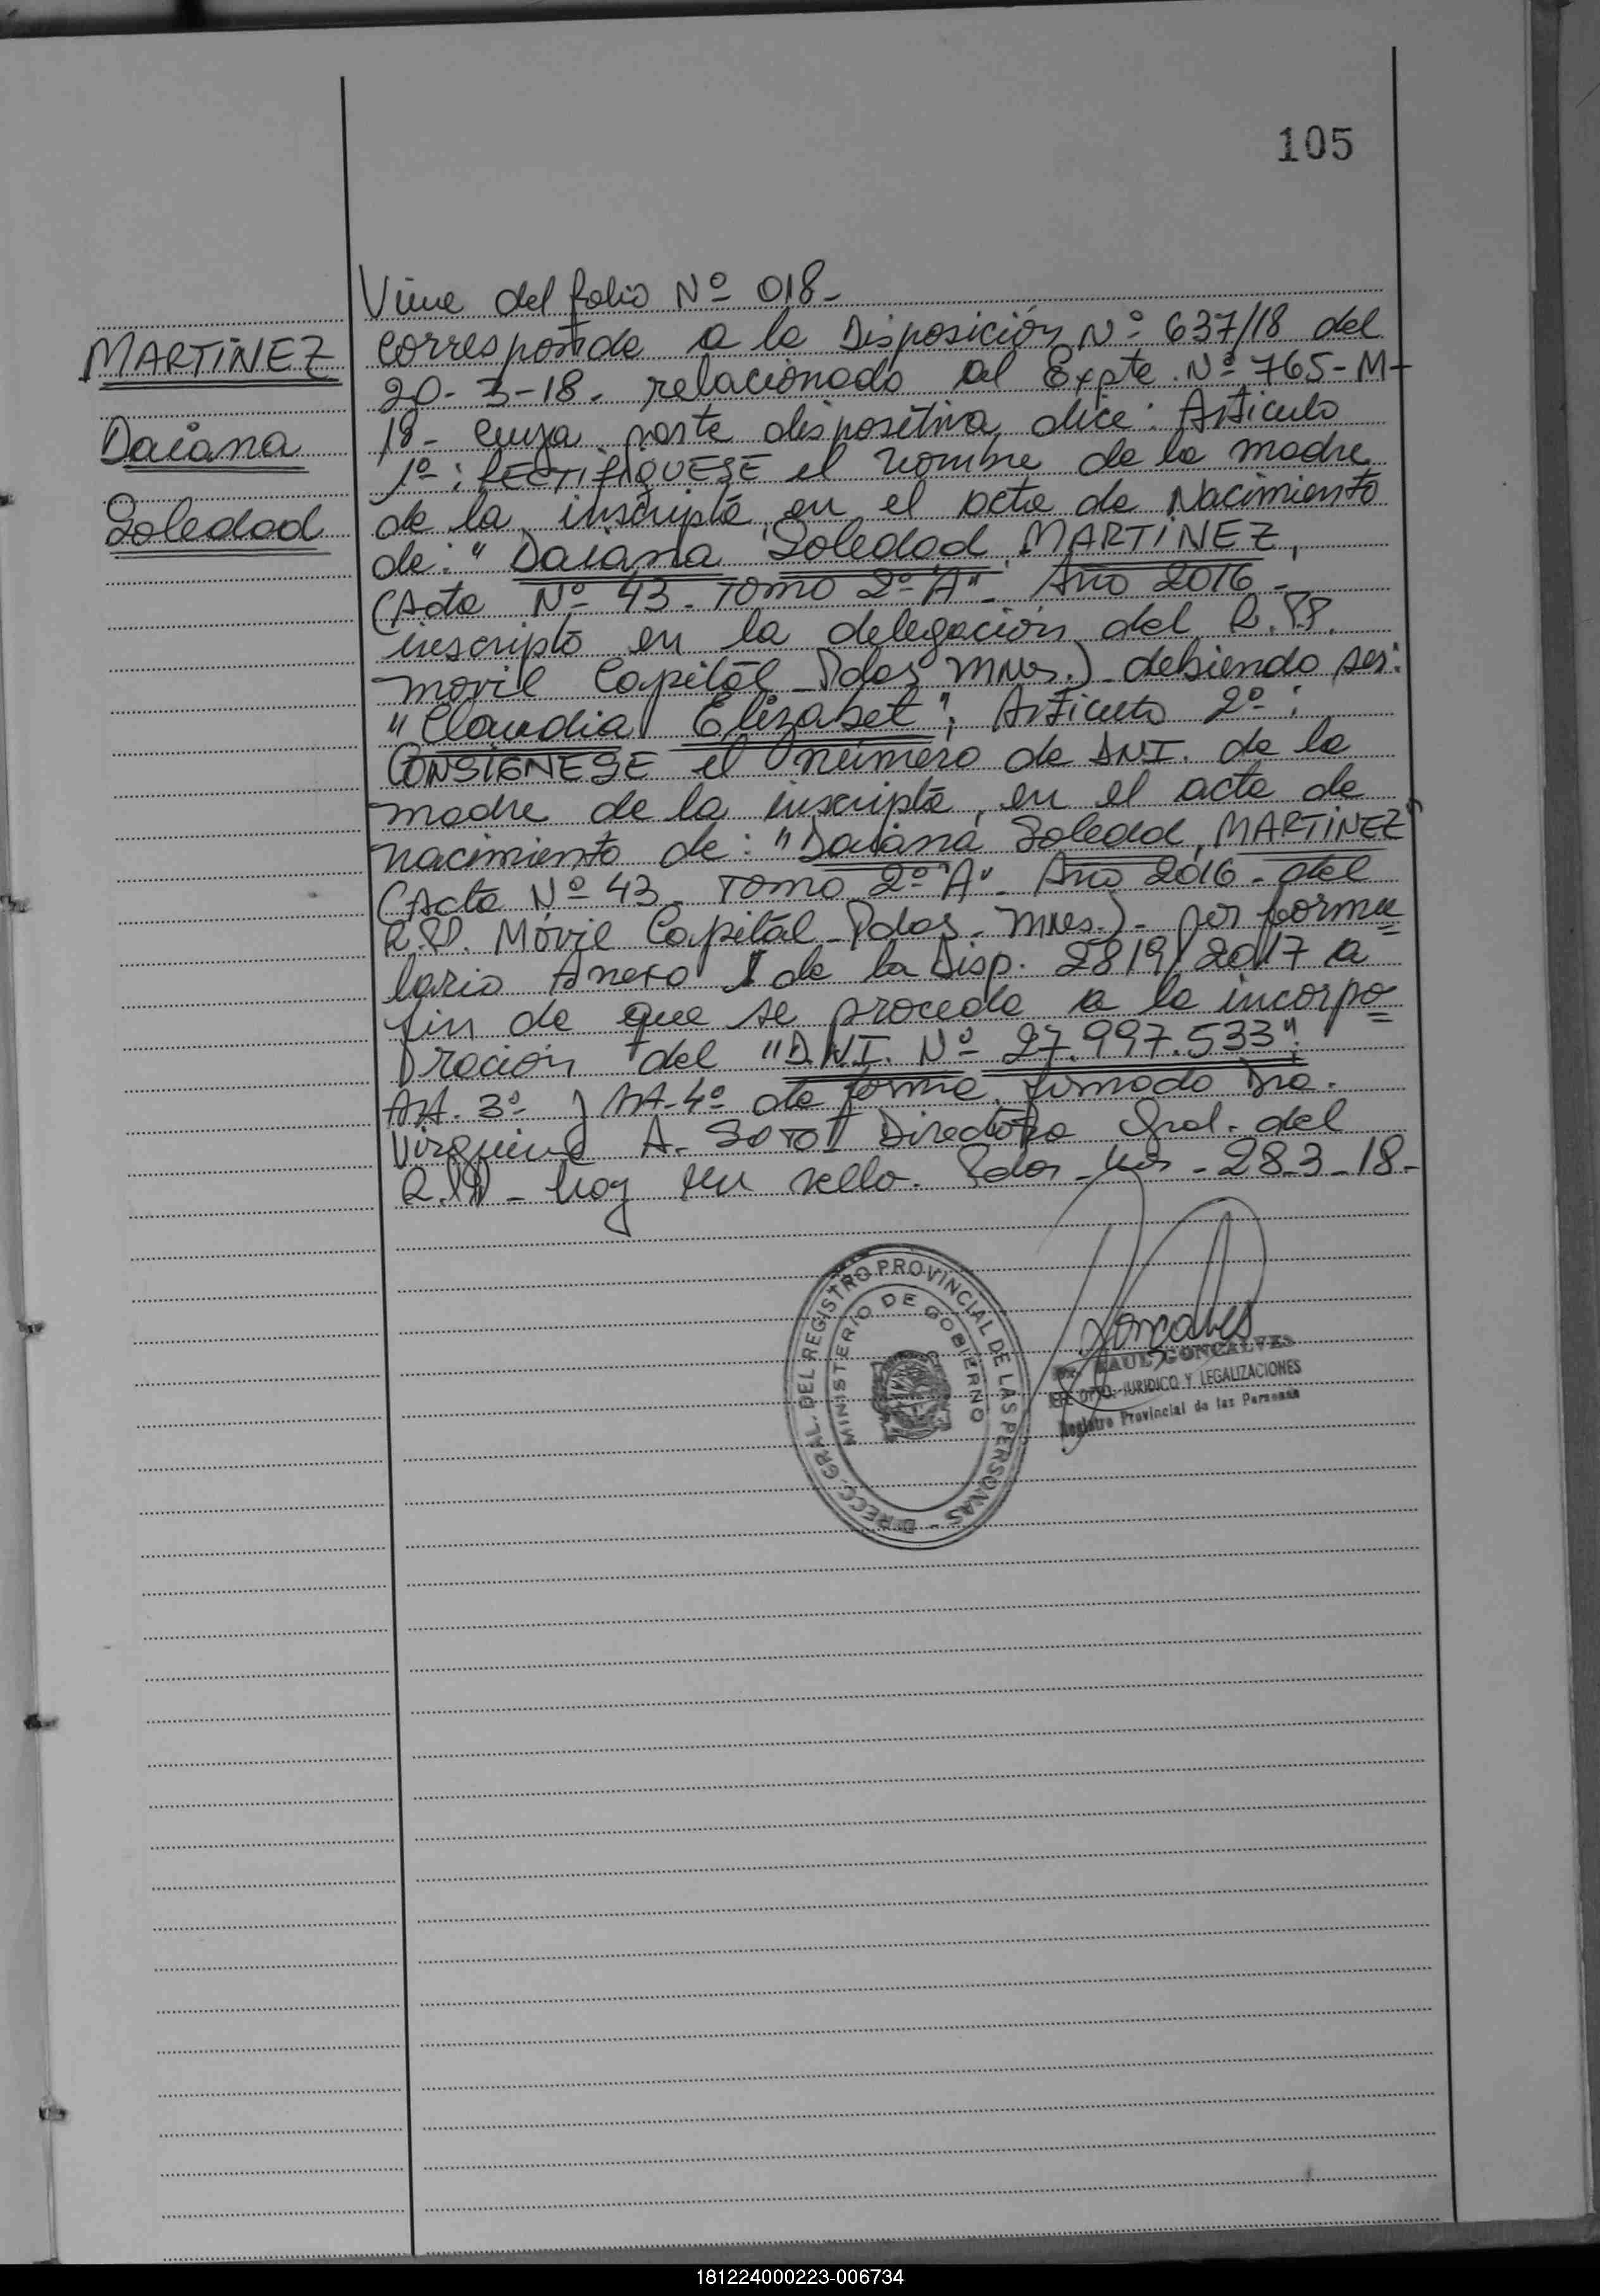 105
MARTINEZ
Daiana
Soledad
Viene del folio Nº 018-
corresponde a la Disposición Nº 637/18 del
20-3-18- relacionado al Expte. Nº 765-M-
18- cuya parte dispositiva dice: Articulo
1º: RECTIFIQUESE el nombre de la madre
de la inscripta en el acta de Nacimiento
de: "Daiana Soledad MARTINEZ,
(Acta Nº 43- Tomo 2º "A"- Año 2016-
inscripto en la delegación del R.P.P.
movil Capital Pdas Mnes.) debiendo ser:
"Claudia Elizabet"; Articulo 2º:
CONSIGNESE el número de DNI. de la
madre de la inscripta, en el acta de
nacimiento de: "Daiana Soledad, MARTINEZ"
(Acta Nº 43- Tomo 2º "A"- Año 2016- del
R.P.P. Móvil Capital- Pdas- Mnes.)- por formu=
lario Anexo I de la Disp. 2819/2017 a
fin de que se proceda a la incorpo=
ración del "D.N.I. Nº 27.997.533";
Art. 3º y Art. 4º de forma. firmado Dra.
Virginia A. SOTO Directora Gral. del
R.P.P- hay un sello. Pdas- Mnes - 28-3-18-
DIRECC. GRAL. DEL REGISTRO PROVINCIAL DE LAS PERSONAS -
MINISTERIO DE GOBIERNO
Goncalves
RAUL GONCALVES
DPTO. JURIDICO Y LEGALIZACIONES
Registro Provincial de las Personas
181224000223-006734